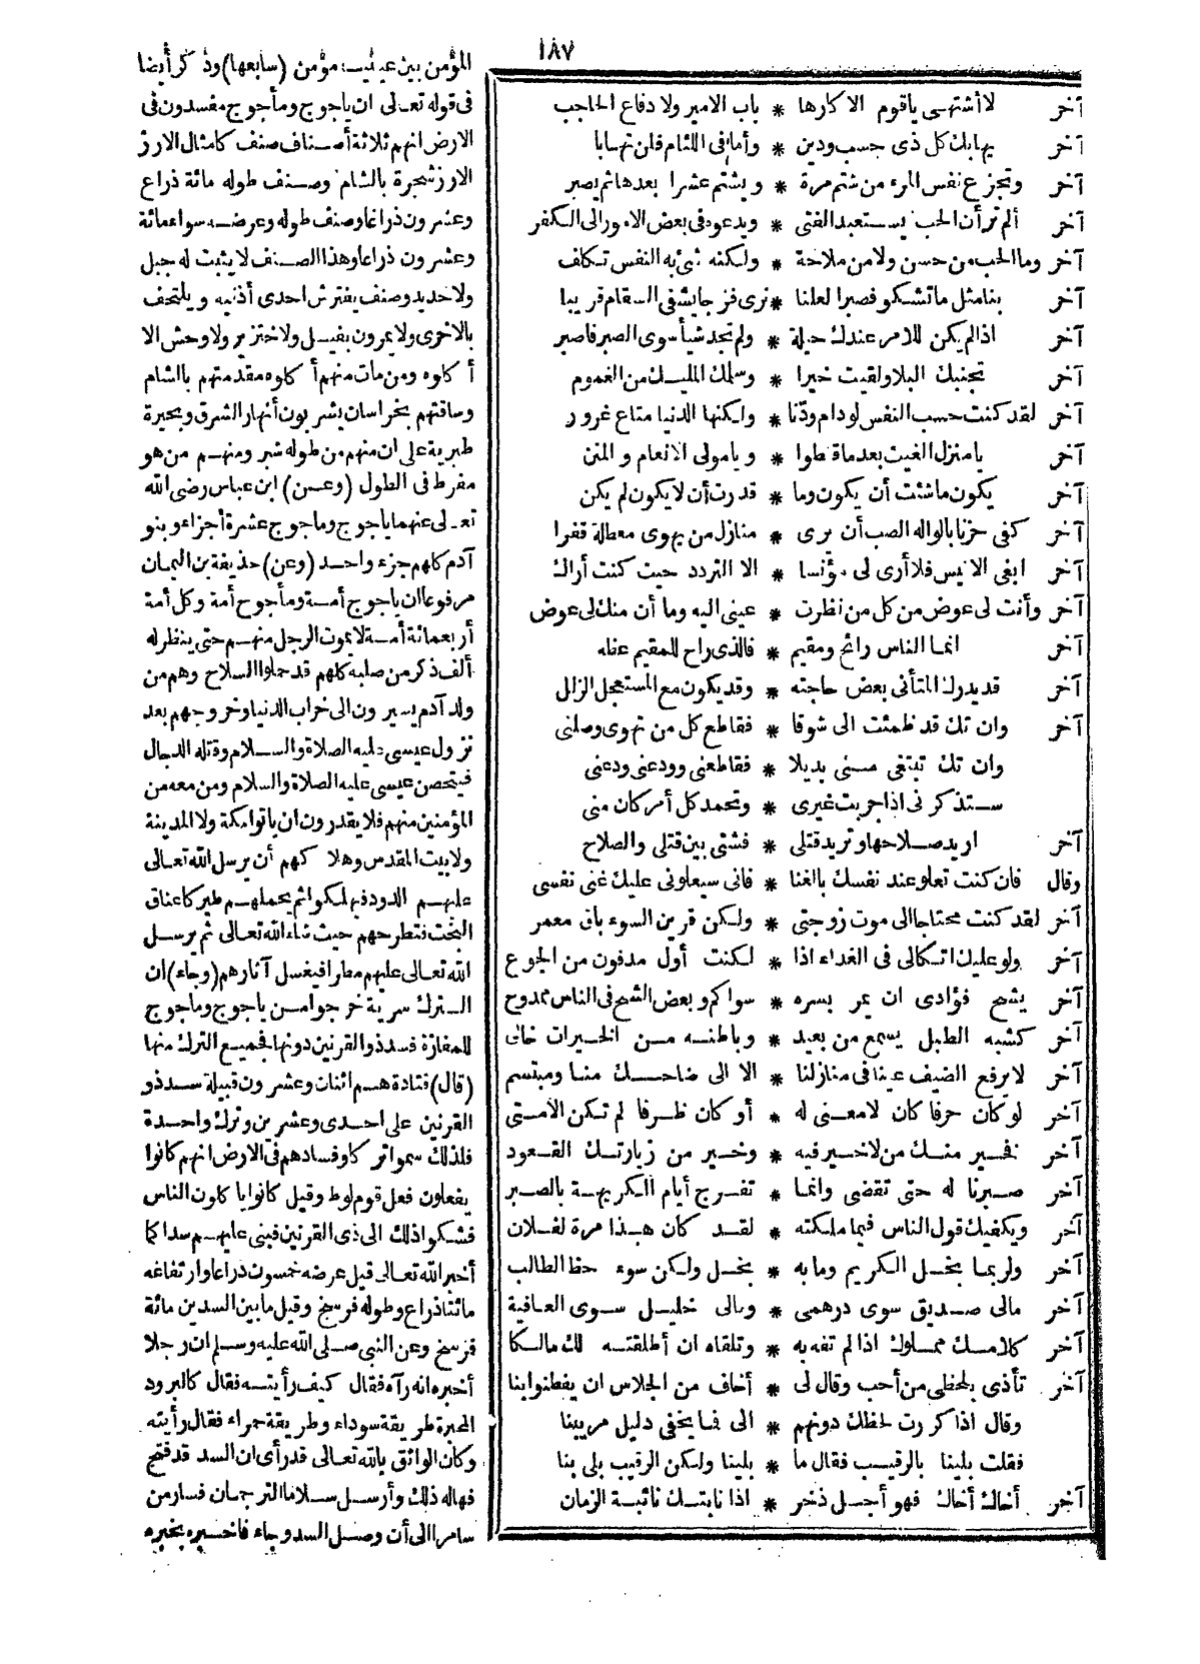 ١٨٧
آخر لا أشتهى ياقوم الا كارها * باب الامير ولا دفاع الحاجب
آخر يهابك كل ذى حسب ودين * وأما فى اللئام فلن تهابا
آخر وتجزع نفس المرء من شتم مرة * ويشتم عشرا بعدها ثم يصبر
آخر ألم تر أن الحب يستعبد الفتى * ويدعوه فى بعض الامور الى الكفر
آخر وما الحب من حسن ولا من ملاحة * ولكنه شئ به النفس تكلف
آخر بنا مثل ما تشكو فصبرا لعلنا * نرى فرجا يشفى السقام قريبا
آخر اذا لم يكن للامر عندك حيلة * ولم تجد شيأ سوى الصبر فاصبر
آخر تجنبك البلا ولقيت خيرا * وسلمك المليك من الغموم
آخر لقد كنت حسب النفس لو دام ودّنا * ولكنها الدنيا متاع غرور
آخر يا منزل الغيث بعد ما قنطوا * ويا مولى الانعام والمنن
آخر يكون ما شئت أن يكون وما * قدرت أن لا يكون لم يكن
آخر كفى حزنا بالواله الصب أن يرى * منازل من يهوى معطلة قفرا
آخر ابغى الانيس فلا أرى لى مؤنسا * الا التردد حيث كنت أراك
آخر وأنت لى عوض من كل من نظرت * عينى اليه وما أن منك لى عوض
آخر انما الناس رائح ومقيم * فالذى راح للمقيم عظه
آخر قد يدرك المتأنى بعض حاجته * وقد يكون مع المستعجل الزلل
آخر وان تك قد ظمئت الى شوقا * فقاطع كل من تهوى وصلنى
وان تك تبتغى مسنى بديلا * فقاطعنى وودعنى ودعنى
ستذكرنى اذا جربت غيرى * وتحمد كل أمر كان منى
آخر اريد صلاحها وتريد قتلى * فشتى بين قتلى والصلاح
وقال فان كنت تعلو عند نفسك بالغنا * فانى سيعلونى عليك غنى نفسى
آخر لقد كنت محتاجا الى موت زوجتى * ولكن قرين السوء باق معمر
آخر ولو عليك اتكالى فى الغداء اذا * لكنت أول مدفون من الجوع
آخر يشح فؤادى ان يمر بسره * سواكم وبعض الشح فى الناس ممدوح
آخر كشبه الطبل يسمع من بعيد * وباطنه من الخيرات خالى
آخر لا يرفع الضيف عينا فى منازلنا * الا الى ضاحك منا ومبتسم
آخر لو كان حرفا كان لا معنى له * أو كان ظرفا لم تكن الا متى
آخر فخير منك من لا خير فيه * وخير من زيارتك القعود
آخر صبرنا له حتى تقضى وانما * تفرج أيام الكريهة بالصبر
آخر ويكفيك قول الناس فيما ملكته * لقد كان هذا مرة لفلان
آخر ولربما بخل الكريم وما به * بخل ولكن سوء حظ الطالب
آخر مالى صديق سوى درهمى * ومالى خليل سوى العافية
آخر كلامك مملوك اذا لم تفه به * وتلقاه ان أطلقته لك مالكا
آخر تأذى بلحظى من أحب وقال لى * أخاف من الجلاس ان يفطنوا بنا
وقال اذا كررت لحظك دونهم * الى فما يخفى دليل مريبنا
فقلت بلينا بالرقيب فقال ما * بلينا ولكن الرقيب بلى بنا
آخر أخاك أخاك فهو أجل ذخر * اذا نابتك نائبة الزمان
المؤمن بين عينيه مؤمن (سابعها) وذكر أيضا
فى قوله تعالى ان ياجوج ومأجوج مفسدون فى
الارض انهم ثلاثة أصناف صنف كامثال الارز
الارز شجرة بالشام وصنف طوله مائة ذراع
وعشرون ذراعا وصنف طوله وعرضه سواء مائة
وعشرون ذراعا وهذا الصنف لا يثبت له جبل
ولا حديد وصنف يفترش احدى أذنيه ويلتحف
بالاخرى ولا يمرون بفيل ولا خنزير ولا وحش الا
أكلوه ومن مات منهم أكلوه مقدمتهم بالشام
وساقتهم بخراسان يشربون أنهار الشرق وبحيرة
طبرية على ان منهم من طوله شبر ومنهم من هو
مفرط فى الطول (وعن) ابن عباس رضى الله
تعالى عنهما ياجوج وماجوج عشرة أجزاء وبنو
آدم كلهم جزء واحد (وعن) حذيفة بن اليمان
مرفوعا ان ياجوج أمة ومأجوج أمة وكل أمة
أربعمائة أمة لا يموت الرجل منهم حتى ينظر له
ألف ذكر من صلبه كلهم قد حملوا السلاح وهم من
ولد آدم يسيرون الى خراب الدنيا وخروجهم بعد
نزول عيسى عليه الصلاة والسلام وقتله الدجال
فيتحصن عيسى عليه الصلاة والسلام ومن معه من
المؤمنين منهم فلا يقدرون ان ياتوا مكة ولا المدينة
ولا بيت المقدس وهلاكهم أن يرسل الله تعالى
عليهم الدود فيهلكوا ثم يحملهم طير كاعناق
البخت فتطرحهم حيث شاء الله تعالى ثم يرسل
الله تعالى عليهم مطرا فيغسل آثارهم (وجاء) ان
الترك سرية خرجوا من ياجوج وماجوج
للمفازة فسد ذو القرنين دونها فجميع الترك منها
(قال) قتادة هم اثنان وعشرون قبيلة سد ذو
القرنين على احدى وعشرين وترك واحدة
فلذلك سموا تركا وفسادهم فى الارض انهم كانوا
يفعلون فعل قوم لوط وقيل كانوا ياكلون الناس
فشكوا ذلك الى ذى القرنين فبنى عليهم سدا كما
أخبر الله تعالى قيل عرضه خمسون ذراعا وارتفاعه
مائتا ذراع وطوله فرسخ وقيل ما بين السدين مائة
فرسخ وعن النبى صلى الله عليه وسلم ان رجلا
أخبره انه رآه فقال كيف رأيته فقال كالبرود
المحبرة طريقة سوداء وطريقة حمراء فقال رأيته
وكان الواثق بالله تعالى قد رأى ان السد قد فتح
فهاله ذلك وأرسل سلاما الترجمان فسار من
سامرا الى أن وصل السد وجاء فاخبره بخبره